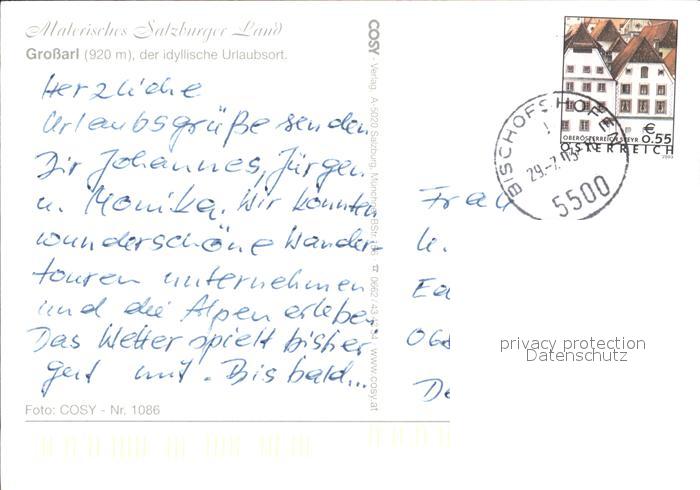 Malerisches Salzburger Land
Großarl (920 m), der idyllische Urlaubsort.
Herzliche
Urlaubsgrüße senden
Dir Johannes, Jürgen
u. Monika. Wir konnten
wunderschöne Wander-
touren unternehmen
und die Alpen erleben
Das Wetter spielt bisher
gut mit. Bis bald...
Foto: COSY - Nr. 1086
COSY - Verlag, A-5020 Salzburg, www.cosy.at
BISCHOFSHOFEN
29.-7.03
5500
OBERÖSTERREICH STEYR
€ 0.55
ÖSTERREICH
2003
Frau
u.
privacy protection
Datenschutz